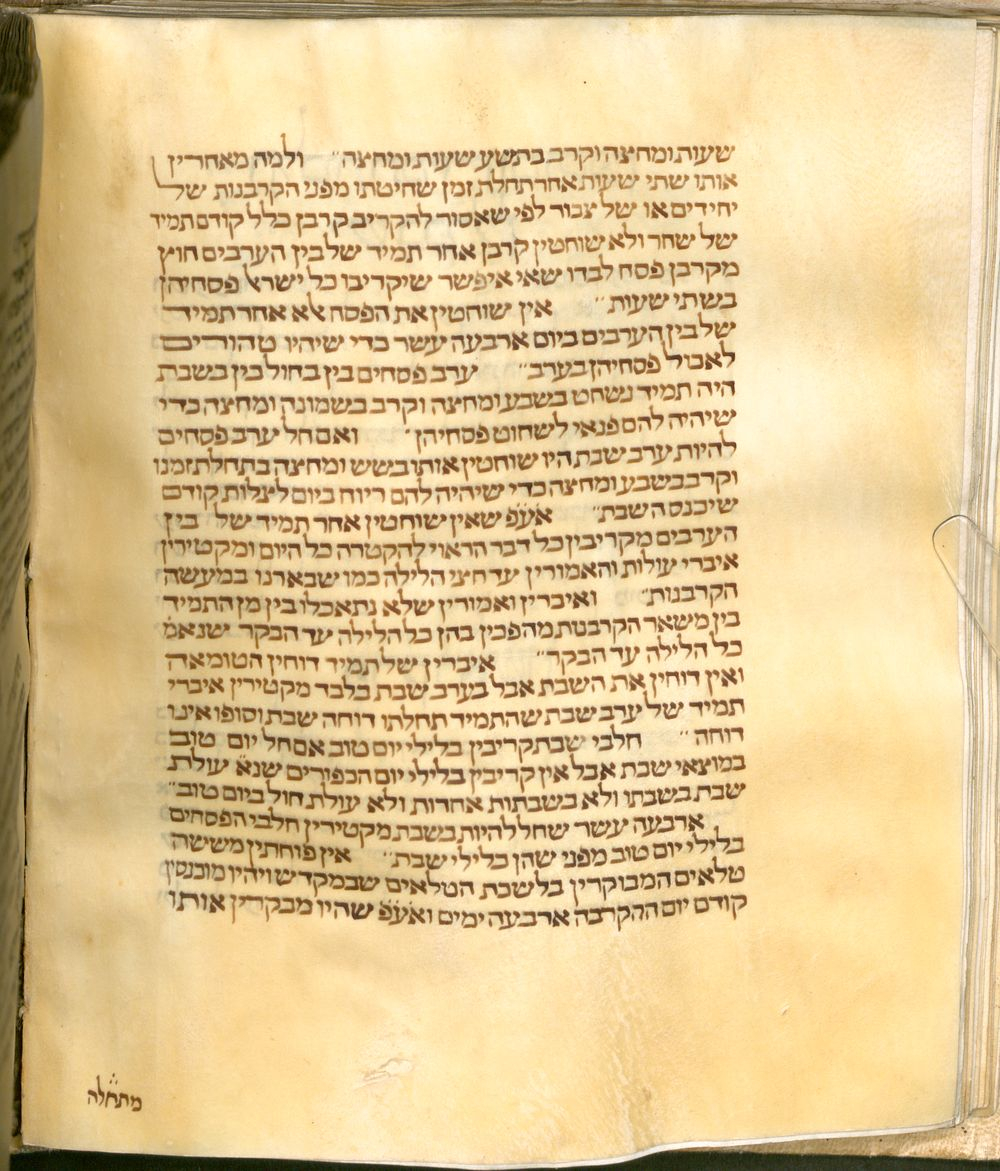 שעות ומחצה וקרב בתשע שעות ומחצה״ ולמה מאחרין
אותו שתי שעות אחר תחלת זמן שחיטתו מפני הקרבנות של
יחידים או של צבור לפי שאסור להקריב קרבן כלל קודם תמיד
של שחר ולא שוחטין קרבן אחר תמיד של בין הערבים חוץ
מקרבן פסח לבדו שאי איפשר שיקריבו כל ישראל פסחיהן
בשתי שעות״ אין שוחטין את הפסח אלא אחר תמיד
של בין הערבים ביום ארבעה עשר כדי שיהיו טהורים
לאכול פסחיהן בערב״ ערב פסחים בין בחול בין בשבת
היה תמיד נשחט בשבע ומחצה וקרב בשמונה ומחצה כדי
שיהיה להם פנאי לשחוט פסחיהן״ ואם חל ערב פסחים
להיות ערב שבת היו שוחטין אותו בשש ומחצה בתחלת זמנו
וקרב בשבע ומחצה כדי שיהיה להם ריוח ביום לצלות קודם
שיכנס השבת״ אע֗פ֗ שאין שוחטין אחר תמיד של בין
הערבים מקריבין כל דבר הראוי להקטרה כל היום ומקטירין
איברי עולות והאמורין עד חצי הלילה כמו שבארנו במעשה
הקרבנות״ ואיברין ואמורין שלא נתאכלו בין מן התמיד
בין משאר הקרבנות מהפכין בהן כל הלילה עד הבקר שנאמ֗
כל הלילה עד הבקר״ איברין של תמיד דוחין הטומאה
ואין דוחין את השבת אבל בערב שבת בלבד מקטירין איברי
תמיד של ערב שבת שהתמיד תחלתו דוחה שבת וסופו אינו
דוחה״ חלבי שבת קריבין בלילי יום טוב אם חל יום טוב
במוצאי שבת אבל אין קריבין בלילי יום הכפורים שנא֗ עולת
שבת בשבתו ולא בשבתות אחרות ולא עולת חול ביום טוב״
ארבעה עשר שחל להיות בשבת מקטירין חלבי הפסחים
בלילי יום טוב מפני שהן בלילי שבת״ אין פוחתין מששה
טלאים המבוקרין בלשכת הטלאים שבמקדש ויהיו מוכנסין
קודם יום ההקרבה ארבעה ימים ואע֗פ֗ שהיו מבקרין אותו
מתחלה